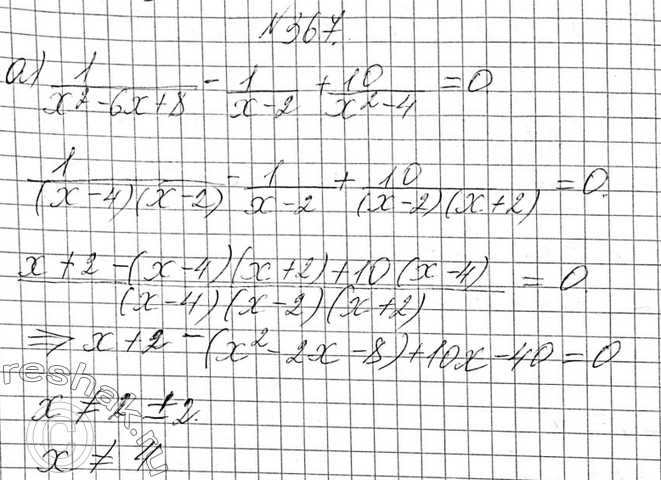 №367.
а) 1/(x²-6x+8) - 1/(x-2) + 10/(x²-4) = 0
1/((x-4)(x-2)) - 1/(x-2) + 10/((x-2)(x+2)) = 0.
(x+2-(x-4)(x+2)+10(x-4))/((x-4)(x-2)(x+2)) = 0
⇒ x+2-(x²-2x-8)+10x-40=0
x ≠ ±2.
x ≠ 4
reshak.ru